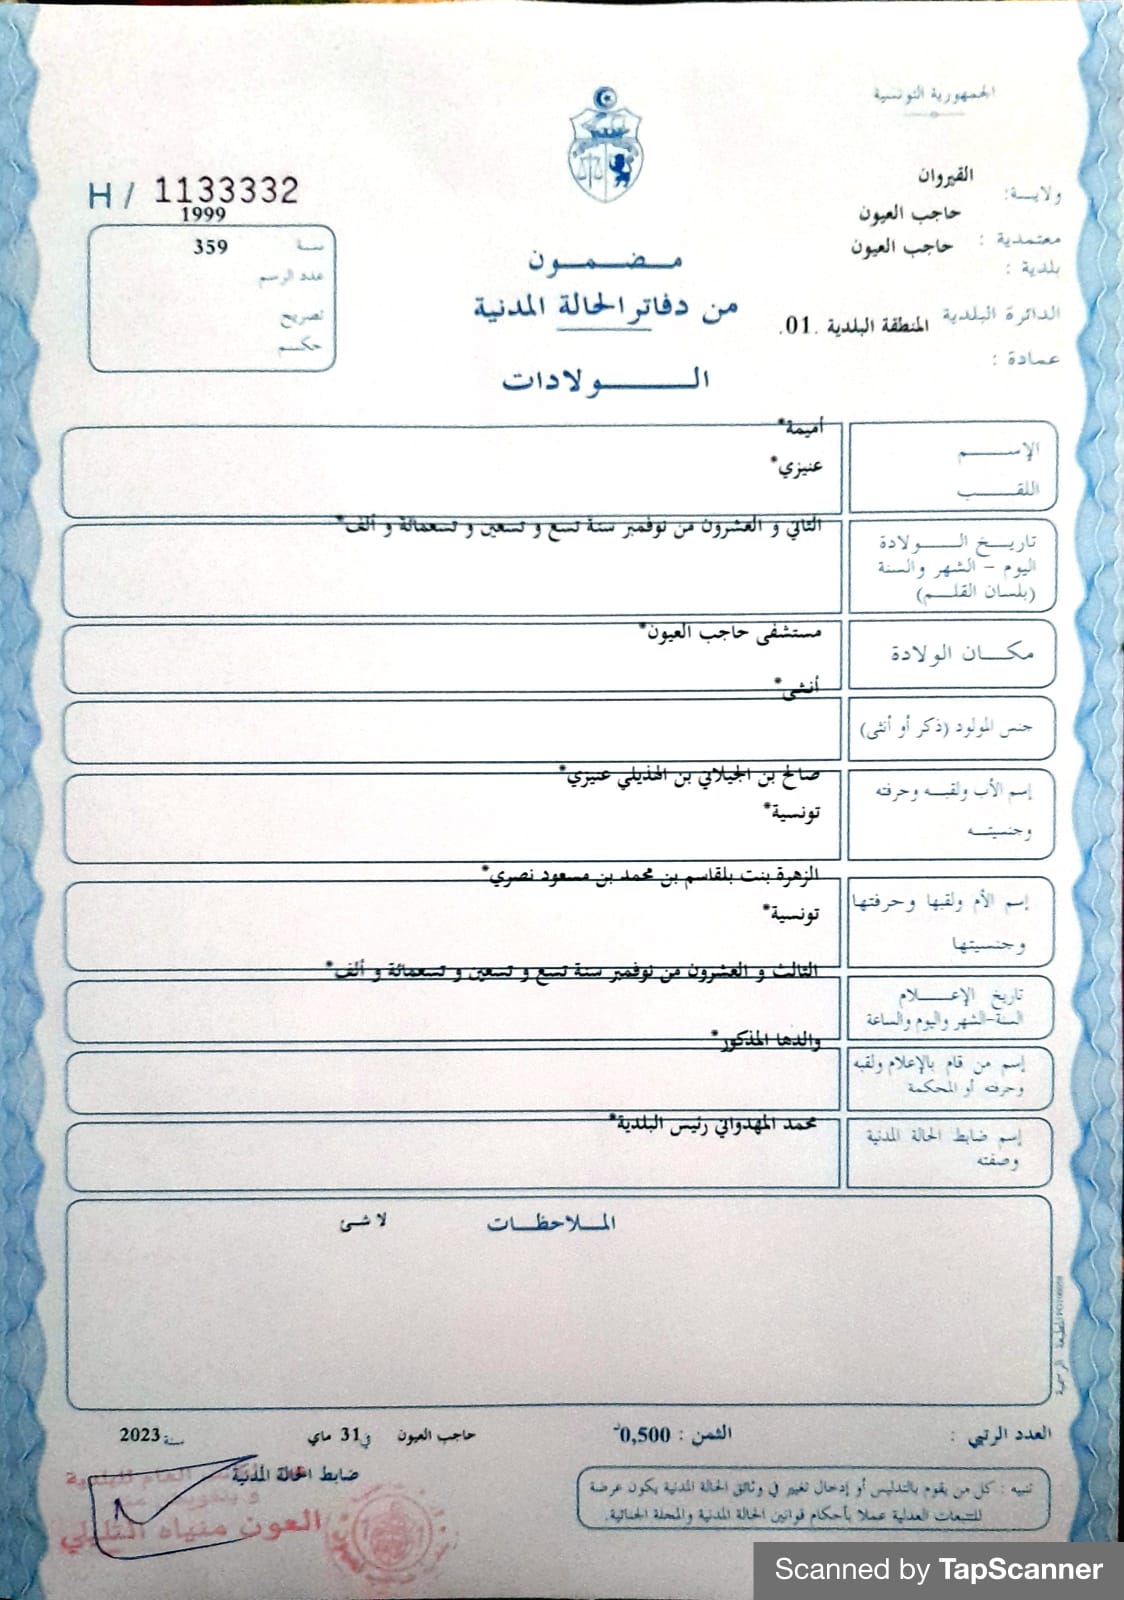 الجمهورية التونسية
ولايـــة: القيروان
معتمدية : حاجب العيون
بلدية : حاجب العيون
الدائرة البلدية المنطقة البلدية .01.
عمادة :
H/ 1133332
1999
سنة 359
عدد الرسم
تصريح
حكم
مضمون
من دفاتر الحالة المدنية
الولادات
الإسم أميمة*
اللقب عنيزي*
تاريخ الولادة
اليوم - الشهر والسنة
(بلسان القلم)
الثاني و العشرون من نوفمبر سنة تسع و تسعين و تسعمائة و ألف*
مكان الولادة مستشفى حاجب العيون*
جنس المولود (ذكر أو أنثى) أنثى*
إسم الأب ولقبه وحرفته صالح بن الجيلاني بن الهذيلي عنيزي*
وجنسيته تونسية*
إسم الأم ولقبها وحرفتها الزهرة بنت بلقاسم بن محمد بن مسعود نصري*
وجنسيتها تونسية*
تاريخ الإعلام
السنة-الشهر واليوم والساعة
الثالث و العشرون من نوفمبر سنة تسع و تسعين و تسعمائة و ألف*
إسم من قام بالإعلام ولقبه
وحرفته أو المحكمة
والدها المذكور*
إسم ضابط الحالة المدنية
وصفته
محمد المهدواني رئيس البلدية*
الملاحظات لا شئ
المطبعة الرسمية
العدد الرتبي : الثمن : 0,500 حاجب العيون في 31 ماي سنة 2023
ضابط الحالة المدنية
العام للبلدية
العون
تنبيه : كل من يقوم بالتدليس أو إدخال تغيير في وثائق الحالة المدنية يكون عرضة
للتتبعات العدلية عملا بأحكام قوانين الحالة المدنية والمجلة الجنائية.
Scanned by TapScanner